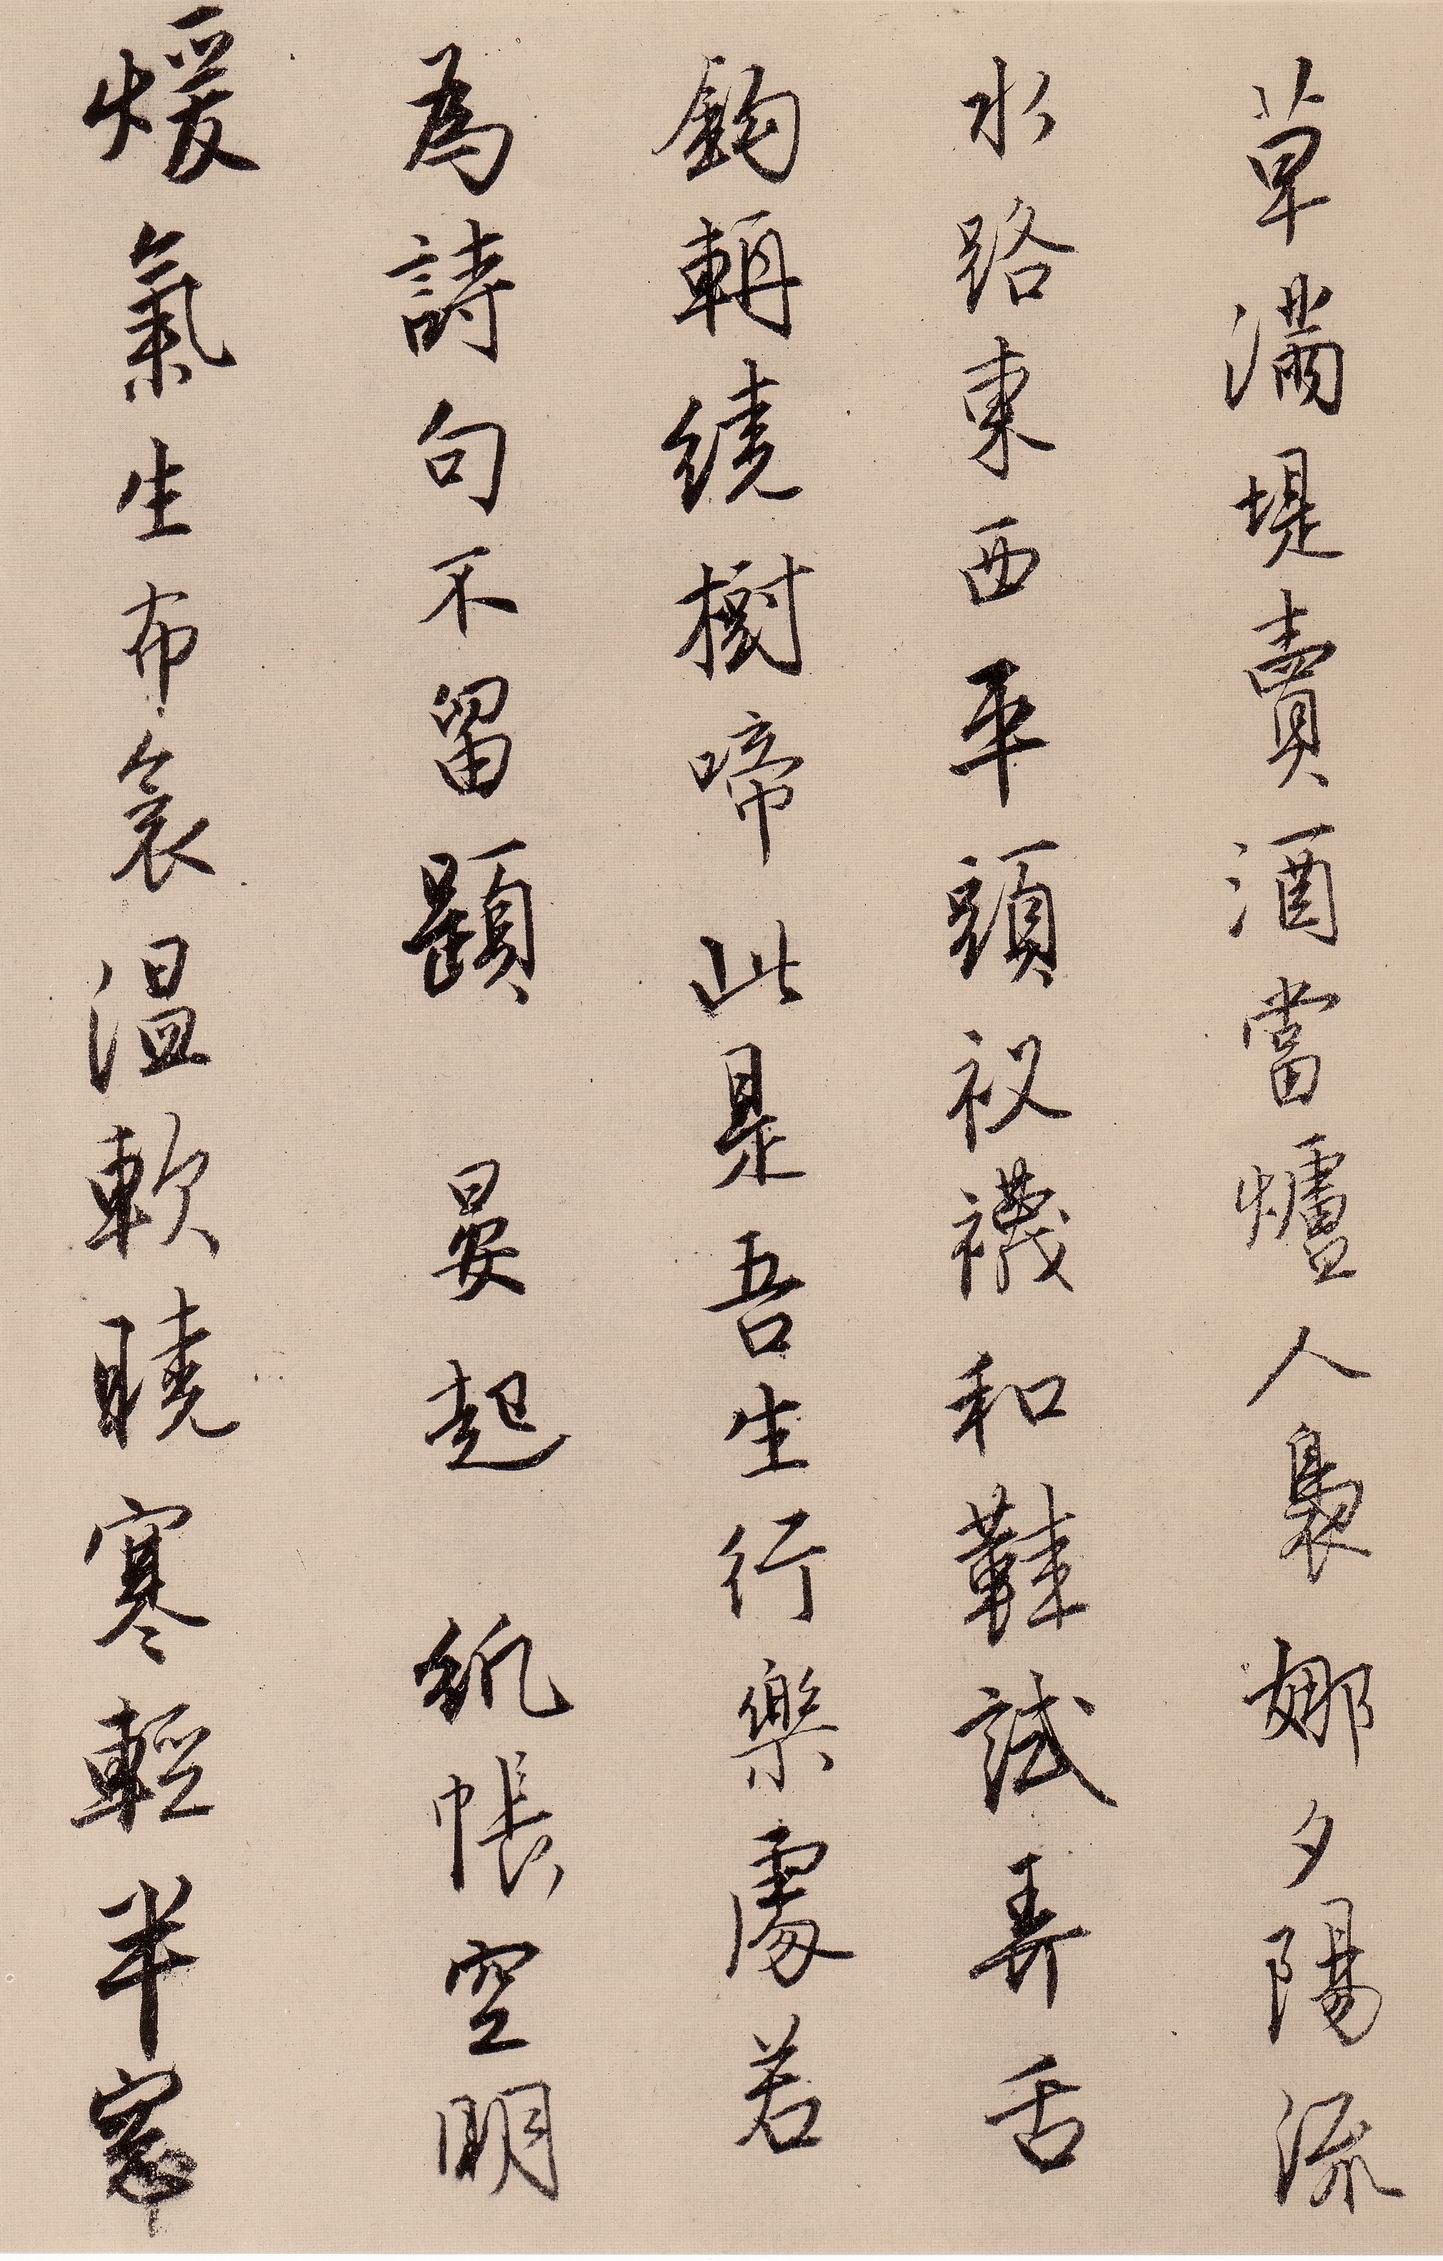 草滿堤賣酒當爐人裊娜夕陽流
水路東西平頭衩襪和鞋試弄舌
鉤輈繞樹啼此是吾生行樂處若
為詩句不留題 晏起 紙帳空明
煖氣生布衾温軟曉寒輕半窗